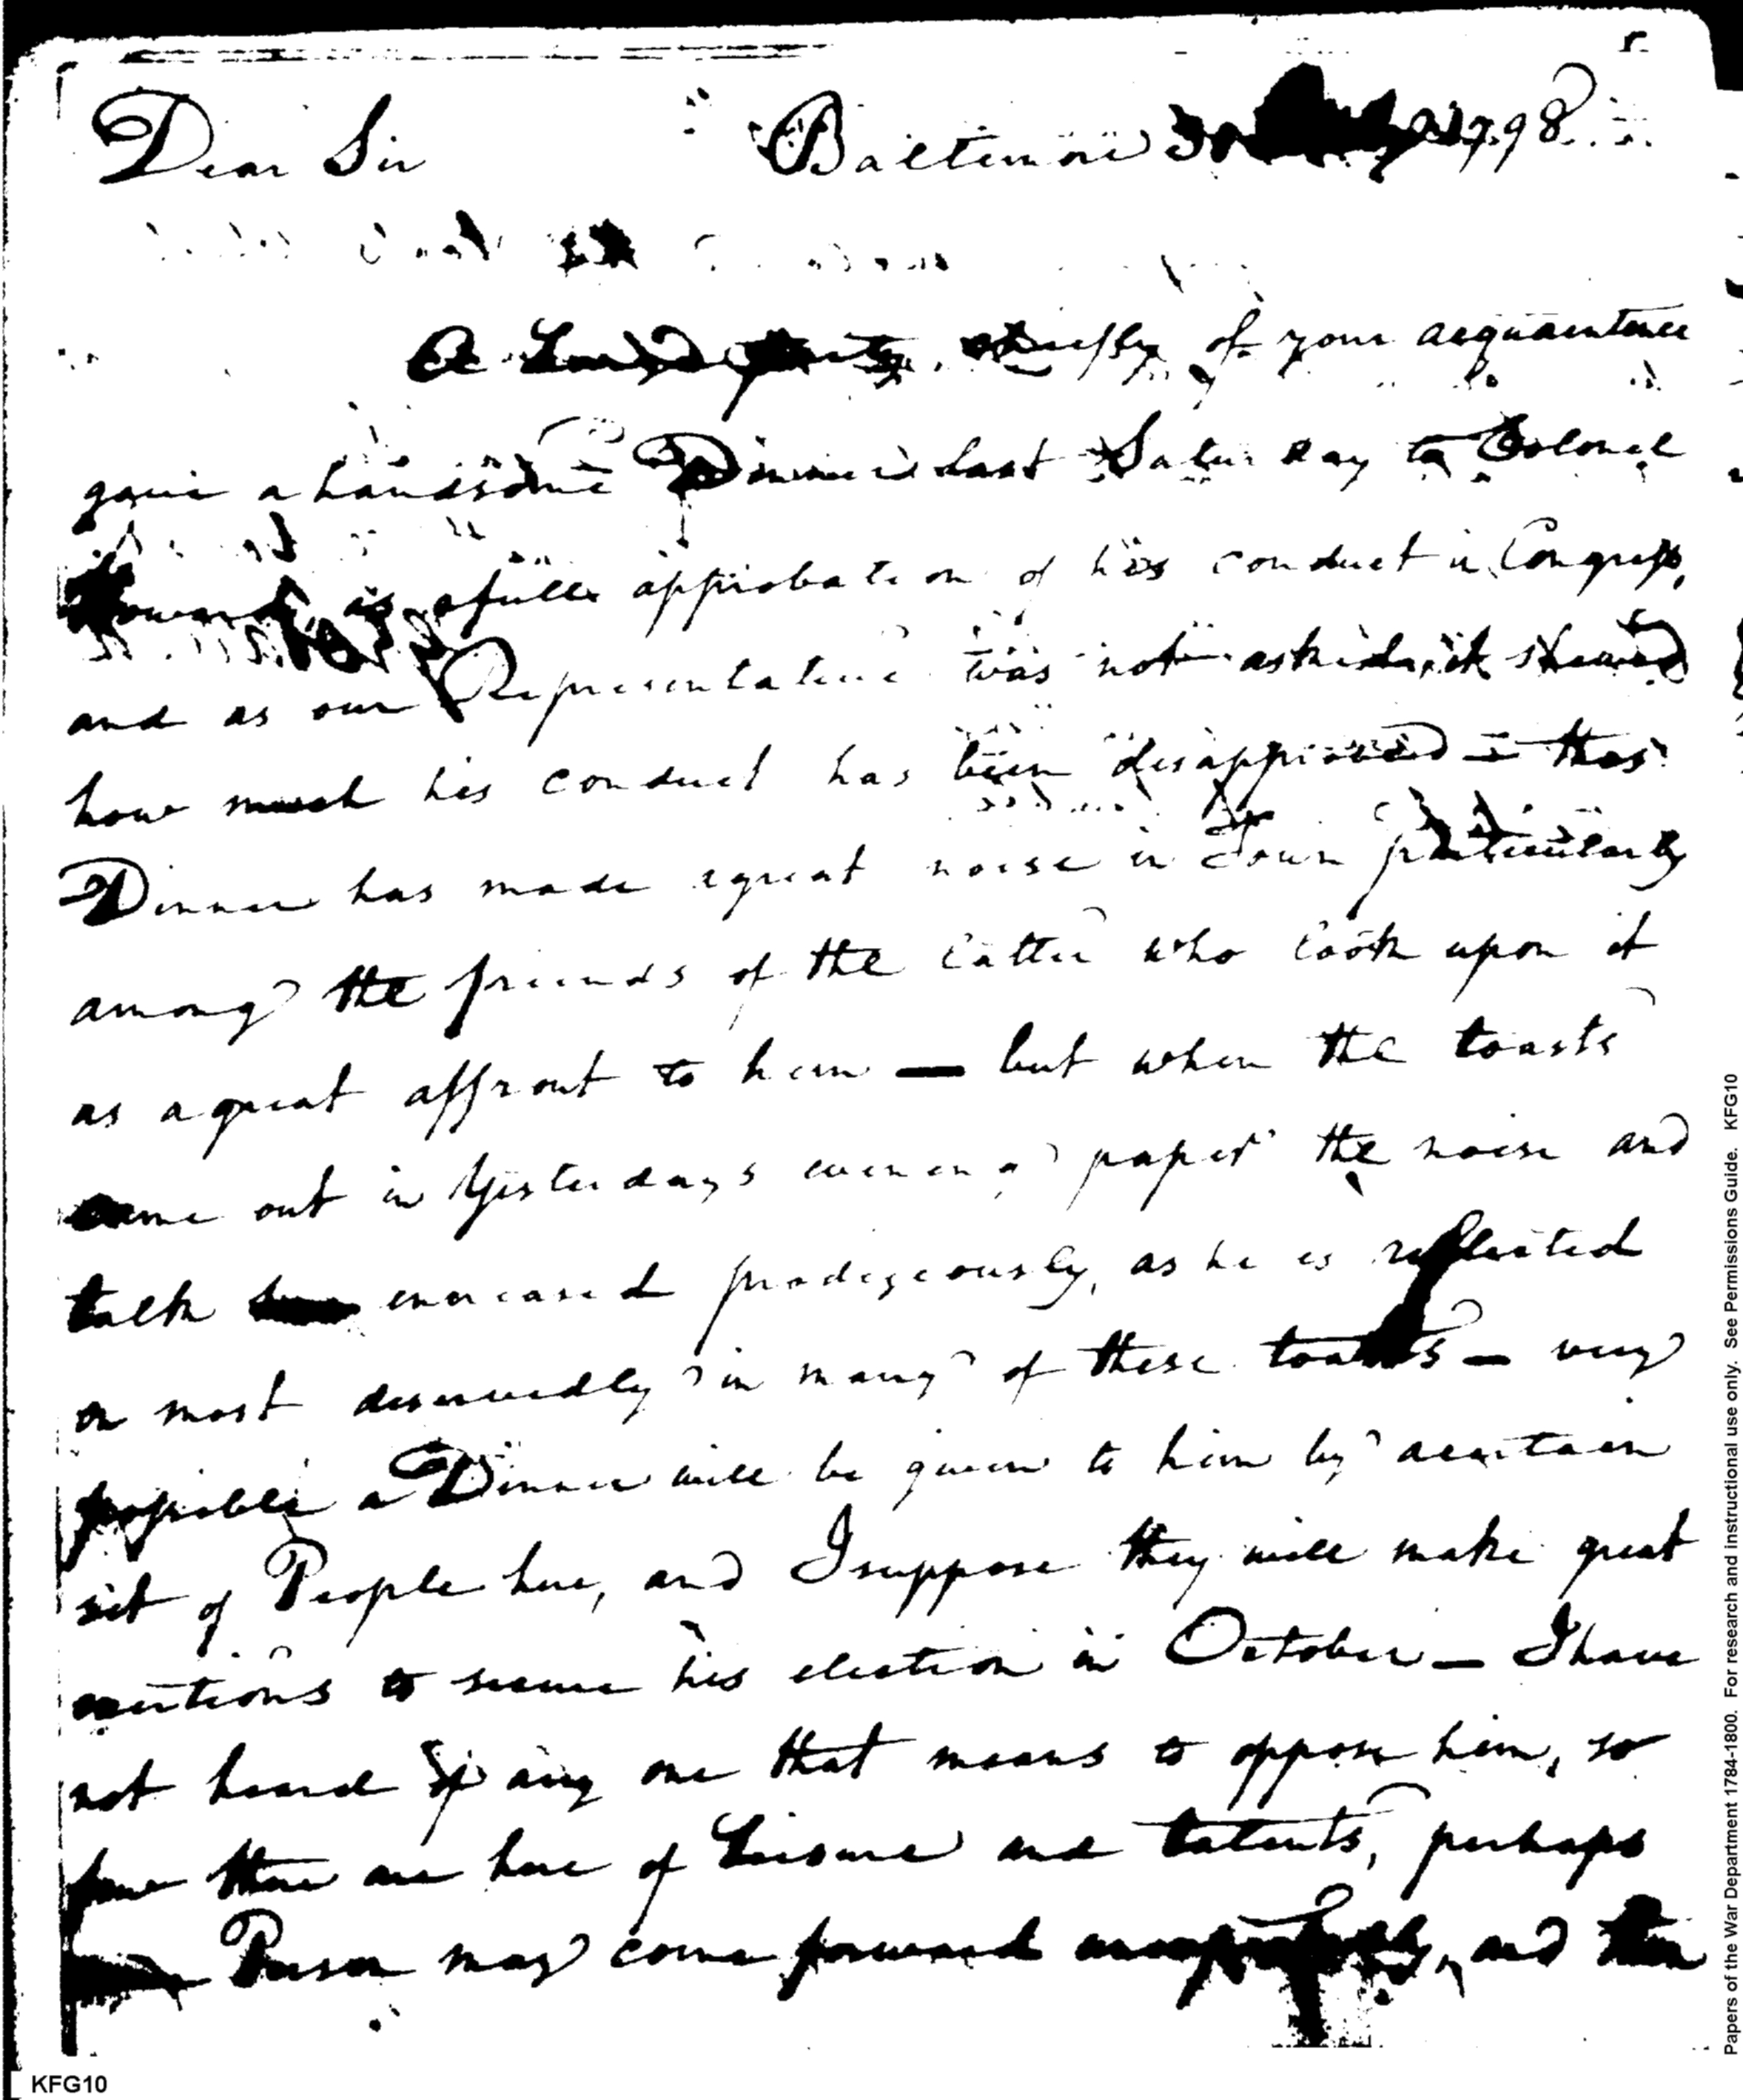 Dear Sir Baltimore 1798
A Large party, chiefly of your acquaintance
gave a handsome Dinner last Saturday to Colonel
Howard as a full approbation of his conduct in Congress,
and as our Representative was not asked, it shewed
how much his conduct has been disapproved – this
Dinner has made a great noise in Town particularly
among the friends of the latter who look upon it
as a great affront to him — but when the toasts
came out in Yesterdays evening paper the noise and
talk encreased prodigeously, as he is reflected
on most deservedly in many of these toasts – very
possible a Dinner will be given to him by a certain
set of People here, and I suppose they will make great
exertions to secure his election in October – I have
not heard of any one that means to oppose him, so
few there are here of Leisure and talents, perhaps
Person may come forward and then
KFG10
Papers of the War Department 1784-1800. For research and instructional use only. See Permissions Guide. KFG10